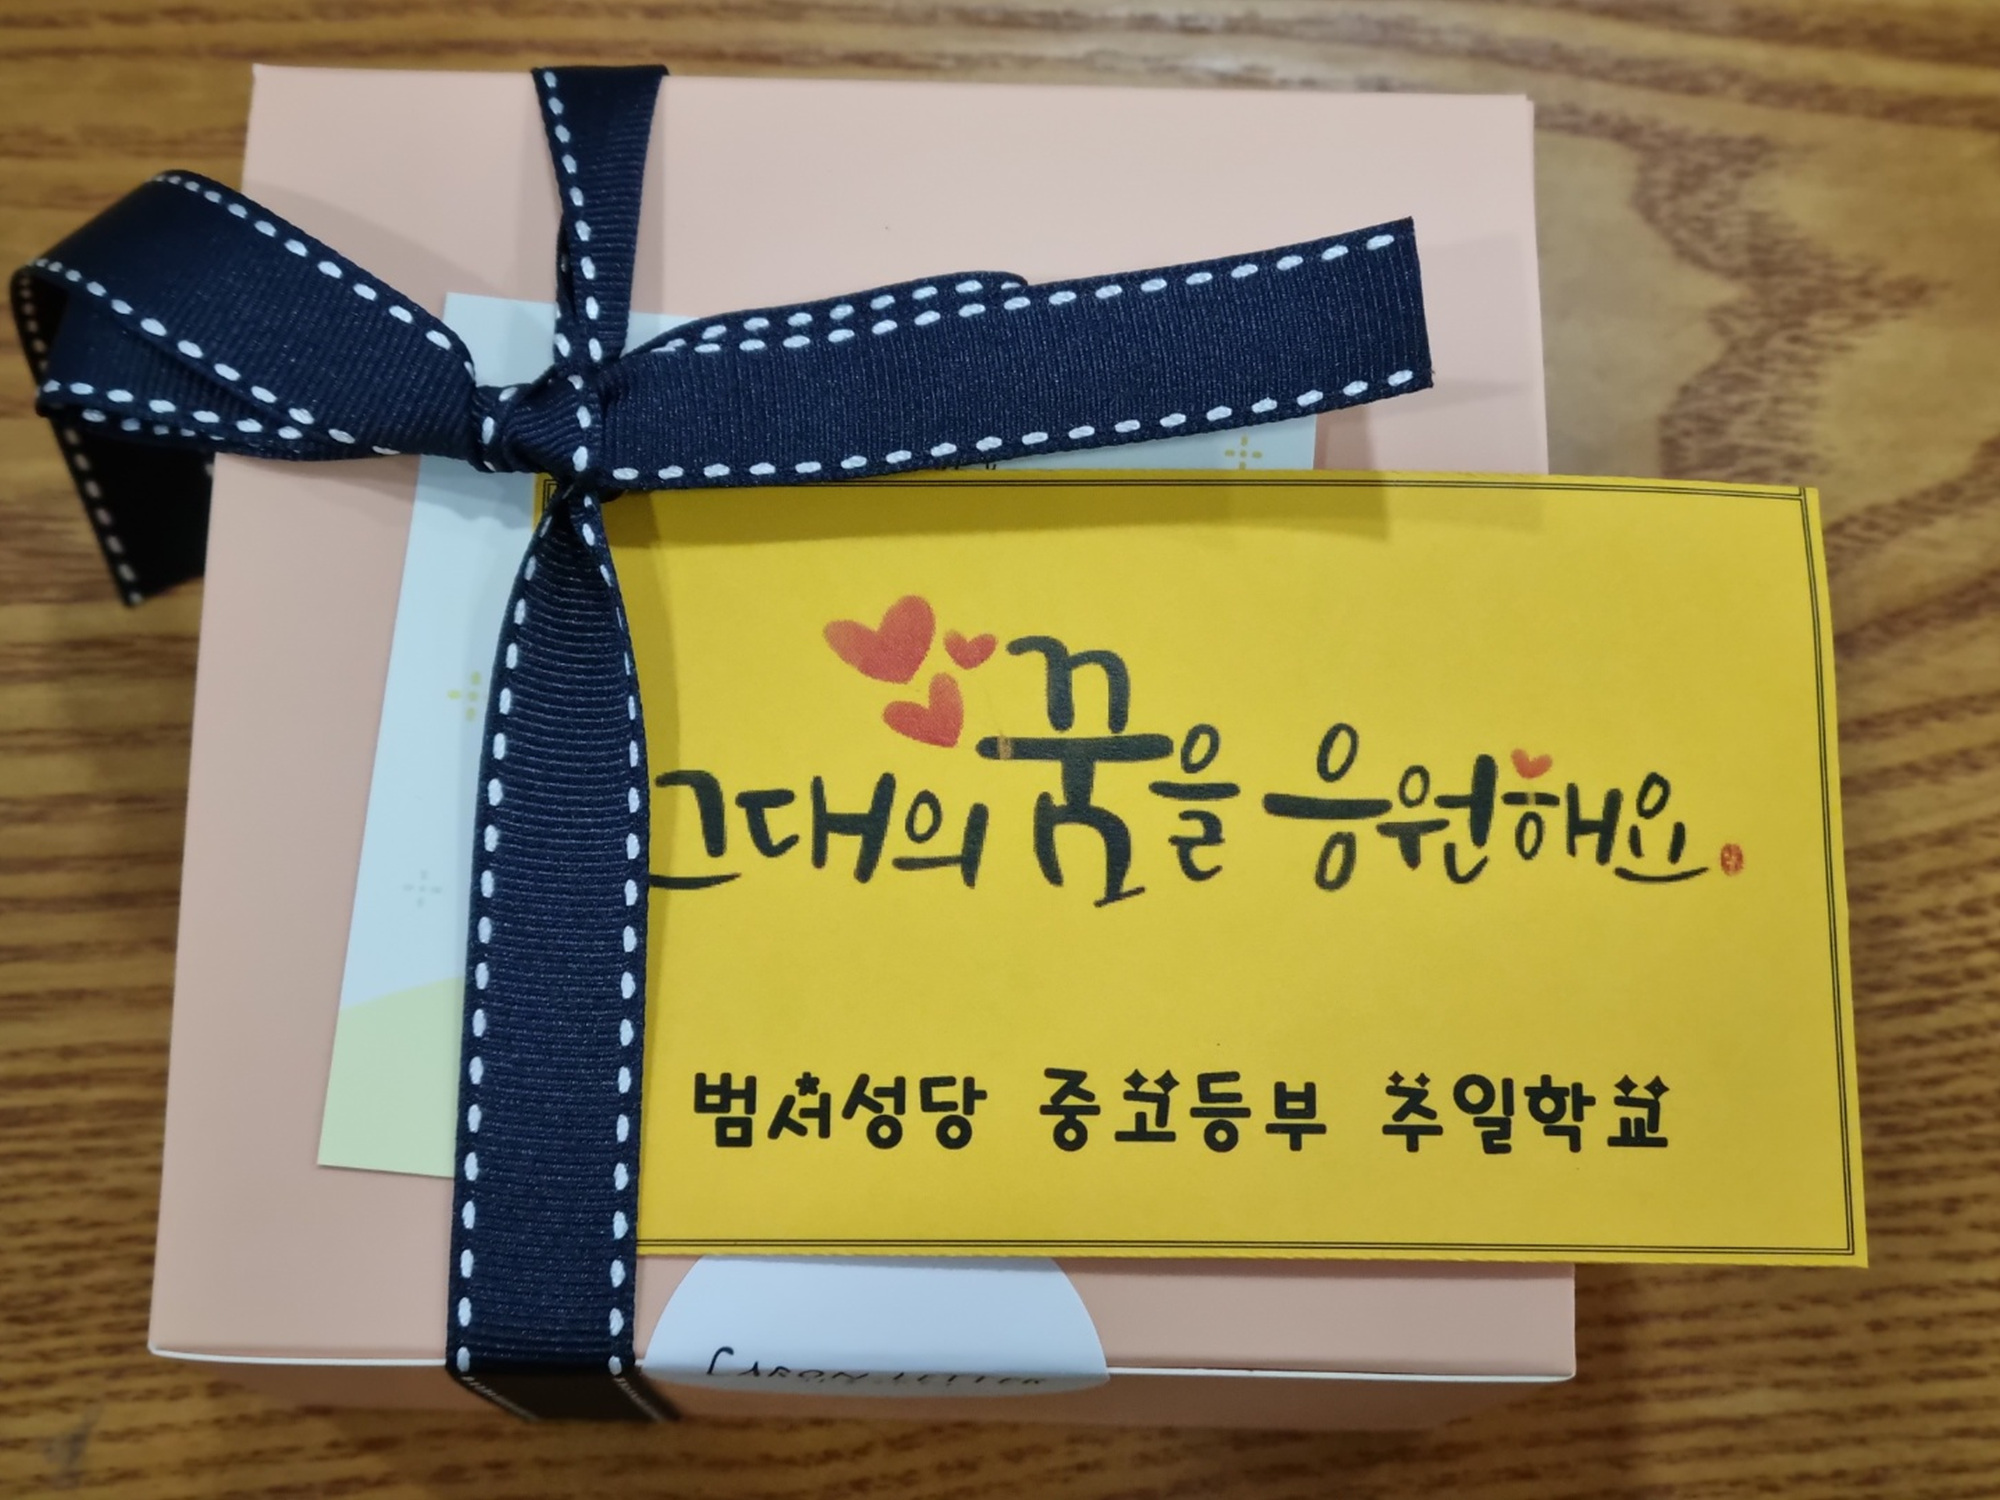 그대의 꿈을 응원해요.
범서성당 중고등부 주일학교
CARON LETTER